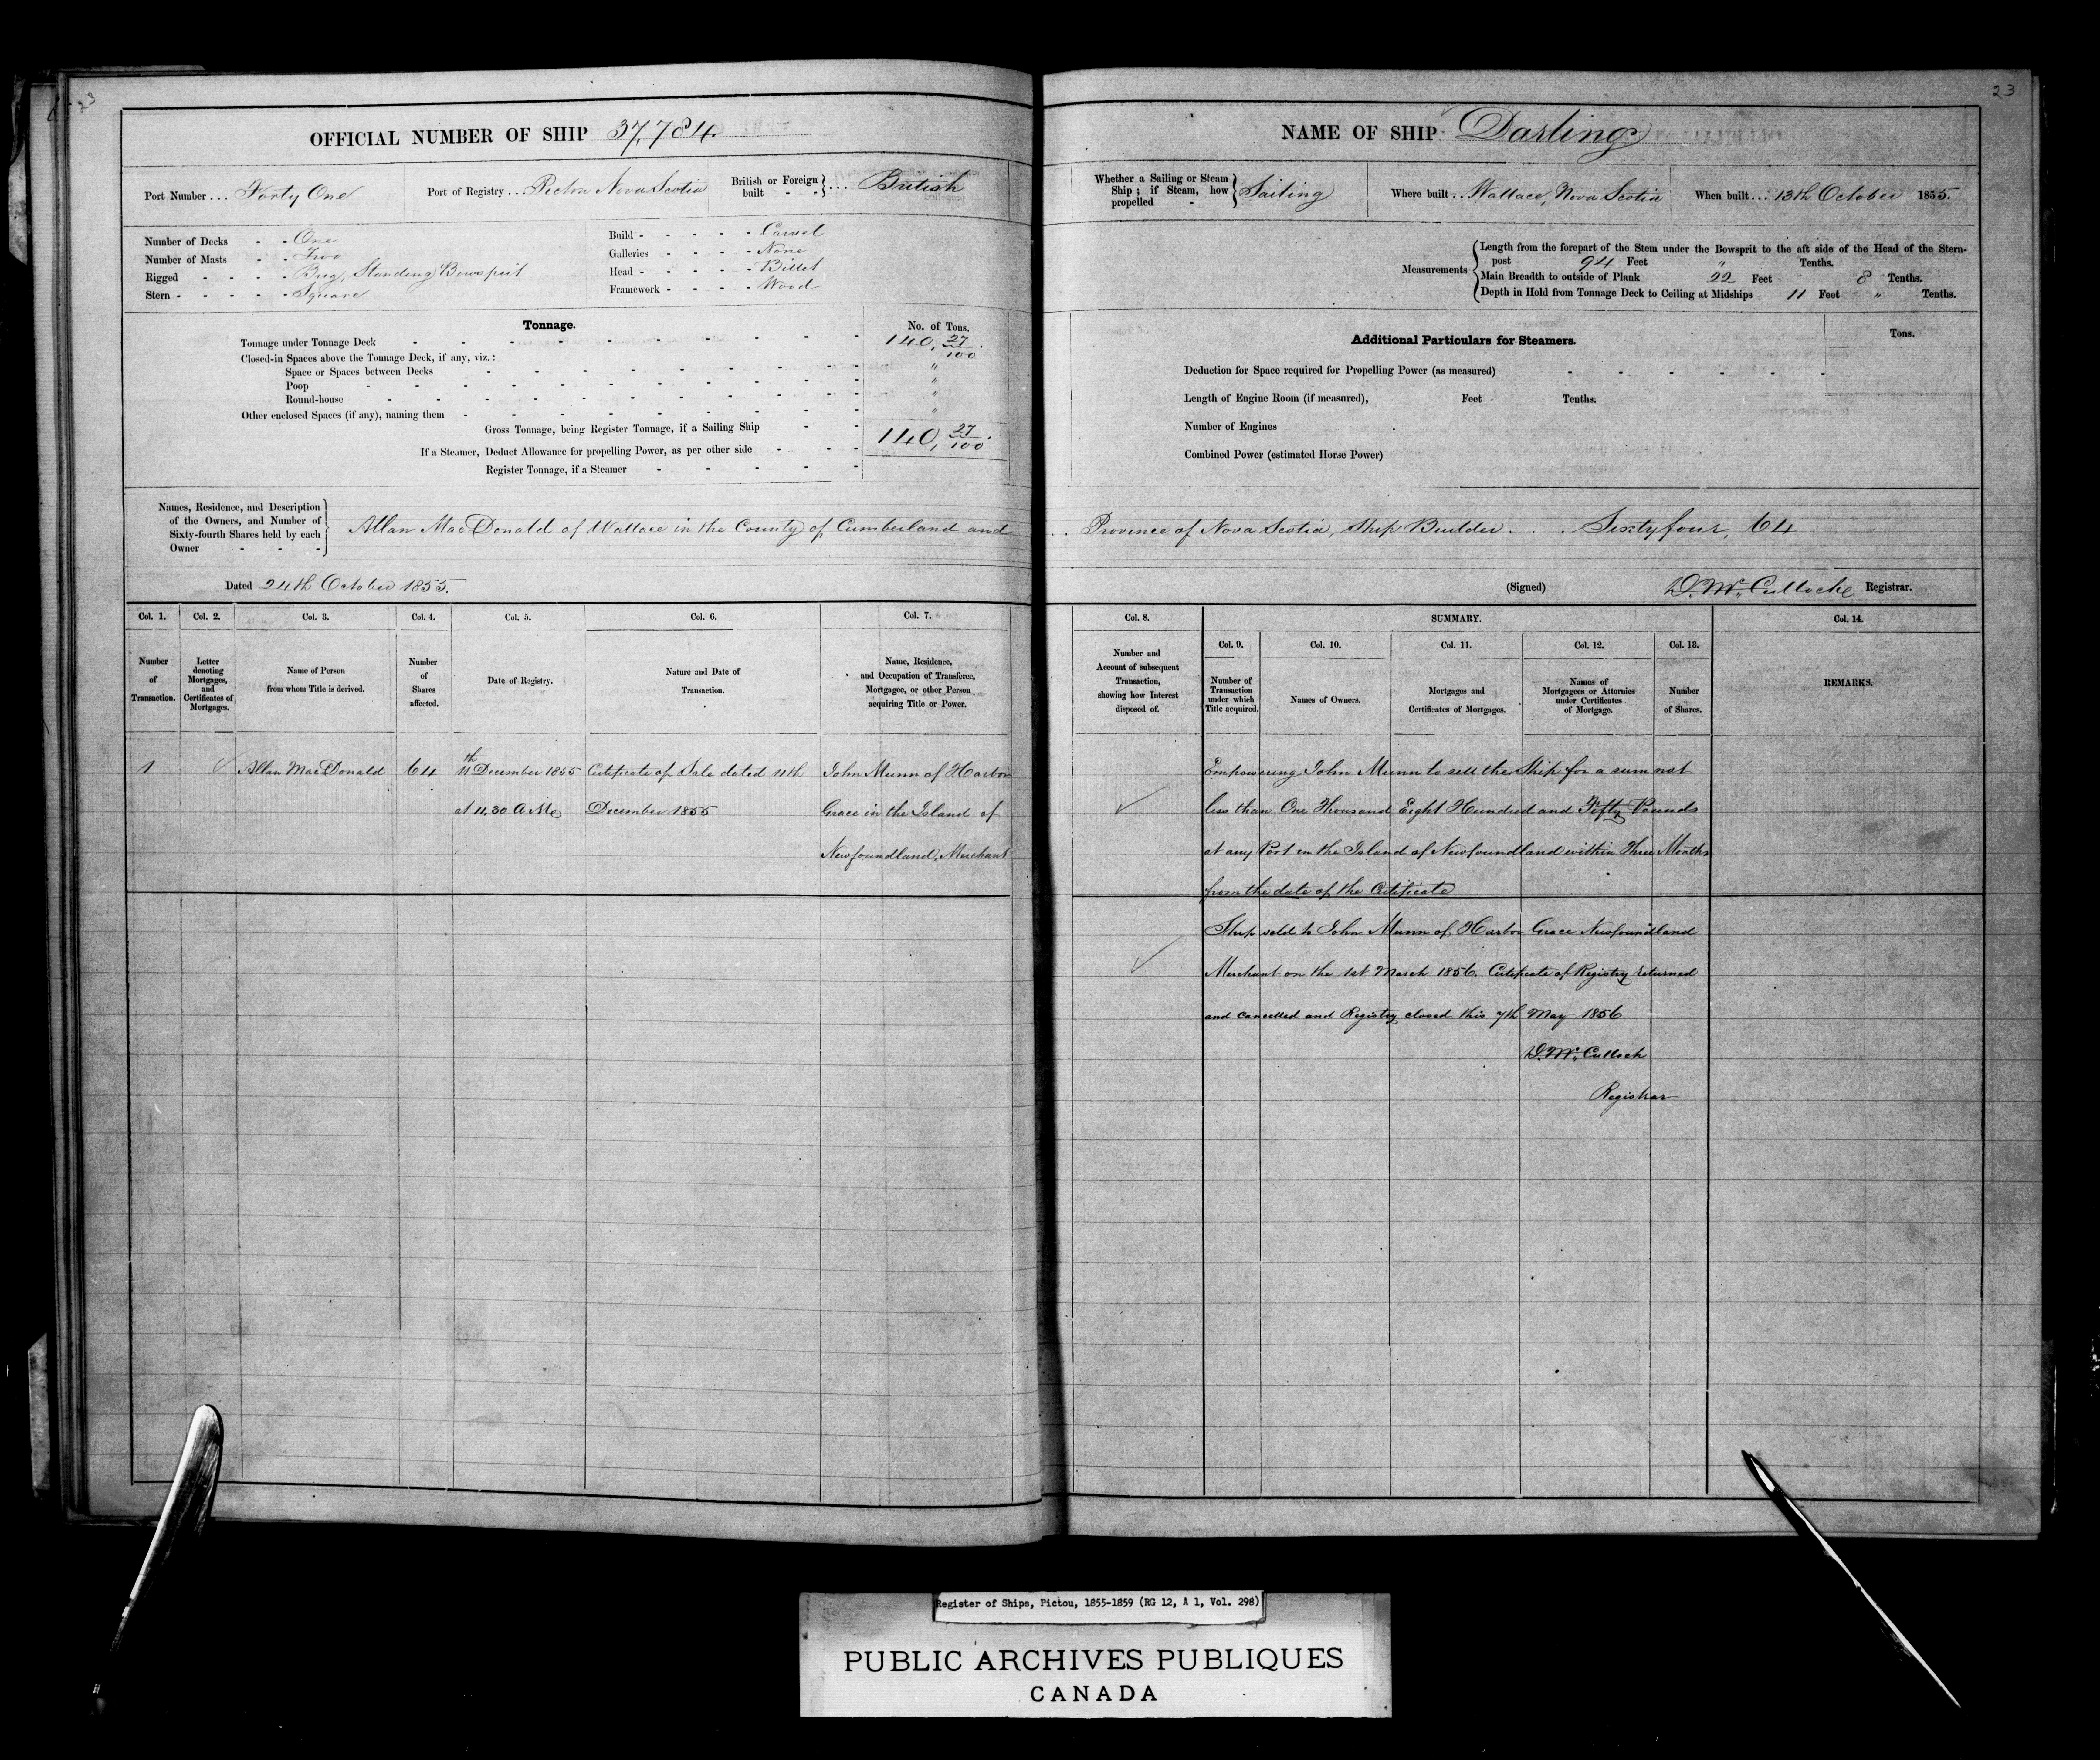 23
OFFICIAL NUMBER OF SHIP 37,784.
Port Number... Forty One
Port of Registry... Pictou Nova Scotia
British or Foreign built - - } ... British
Number of Decks - - One
Number of Masts - - Two
Rigged - - - - Brig, Standing Bowsprit
Stern - - - - - Square
Build - - - - - Carvel
Galleries - - - - None
Head - - - - - Billet
Framework - - - - Wood
Tonnage.
No. of Tons.
Tonnage under Tonnage Deck 140, 27/100.
Closed-in Spaces above the Tonnage Deck, if any, viz.:
Space or Spaces between Decks "
Poop "
Round-house "
Other enclosed Spaces (if any), naming them "
Gross Tonnage, being Register Tonnage, if a Sailing Ship 140, 27/100.
If a Steamer, Deduct Allowance for propelling Power, as per other side
Register Tonnage, if a Steamer
Names, Residence, and Description
of the Owners, and Number of
Sixty-fourth Shares held by each
Owner - - -
Allan MacDonald of Wallace in the County of Cumberland and
Dated 24th October 1855.
Col. 1. Col. 2. Col. 3. Col. 4. Col. 5. Col. 6. Col. 7.
Number of Transaction.
Letter denoting Mortgages, and Certificates of Mortgages.
Name of Person from whom Title is derived.
Number of Shares affected.
Date of Registry.
Nature and Date of Transaction.
Name, Residence, and Occupation of Transferee, Mortgagee, or other Person acquiring Title or Power.
1 Allan MacDonald 64 11th December 1855 Certificate of Sale dated 11th John Munn of Harbor
at 11.30 A M December 1855 Grace in the Island of
Newfoundland, Merchant
23
NAME OF SHIP Darling
Whether a Sailing or Steam Ship; if Steam, how propelled - } Sailing
Where built.. Wallace, Nova Scotia
When built... 13th October 1855.
Measurements
Length from the forepart of the Stem under the Bowsprit to the aft side of the Head of the Stern-
post 94 Feet " Tenths.
Main Breadth to outside of Plank 22 Feet 8 Tenths.
Depth in Hold from Tonnage Deck to Ceiling at Midships 11 Feet " Tenths.
Additional Particulars for Steamers.
Tons.
Deduction for Space required for Propelling Power (as measured)
Length of Engine Room (if measured), Feet Tenths.
Number of Engines
Combined Power (estimated Horse Power)
Province of Nova Scotia, Ship Builder. . . Sixty four, 64
(Signed) D. McCulloch Registrar.
Col. 8. SUMMARY. Col. 14.
Col. 9. Col. 10. Col. 11. Col. 12. Col. 13.
Number and Account of subsequent Transaction, showing how Interest disposed of.
Number of Transaction under which Title acquired.
Names of Owners.
Mortgages and Certificates of Mortgages.
Names of Mortgagees or Attornies under Certificates of Mortgage.
Number of Shares.
REMARKS.
Empowering John Munn to sell the Ship for a sum not
less than One Thousand Eight Hundred and Fifty Pounds
at any Port in the Island of Newfoundland within Three Months
from the date of the Certificate
Ship sold to John Munn of Harbor Grace Newfoundland
Merchant on the 1st March 1856. Certificate of Registry returned
and cancelled and Registry closed this 7th May 1856
D. McCulloch
Registrar
Register of Ships, Pictou, 1855-1859 (RG 12, A 1, Vol. 298)
PUBLIC ARCHIVES PUBLIQUES
CANADA